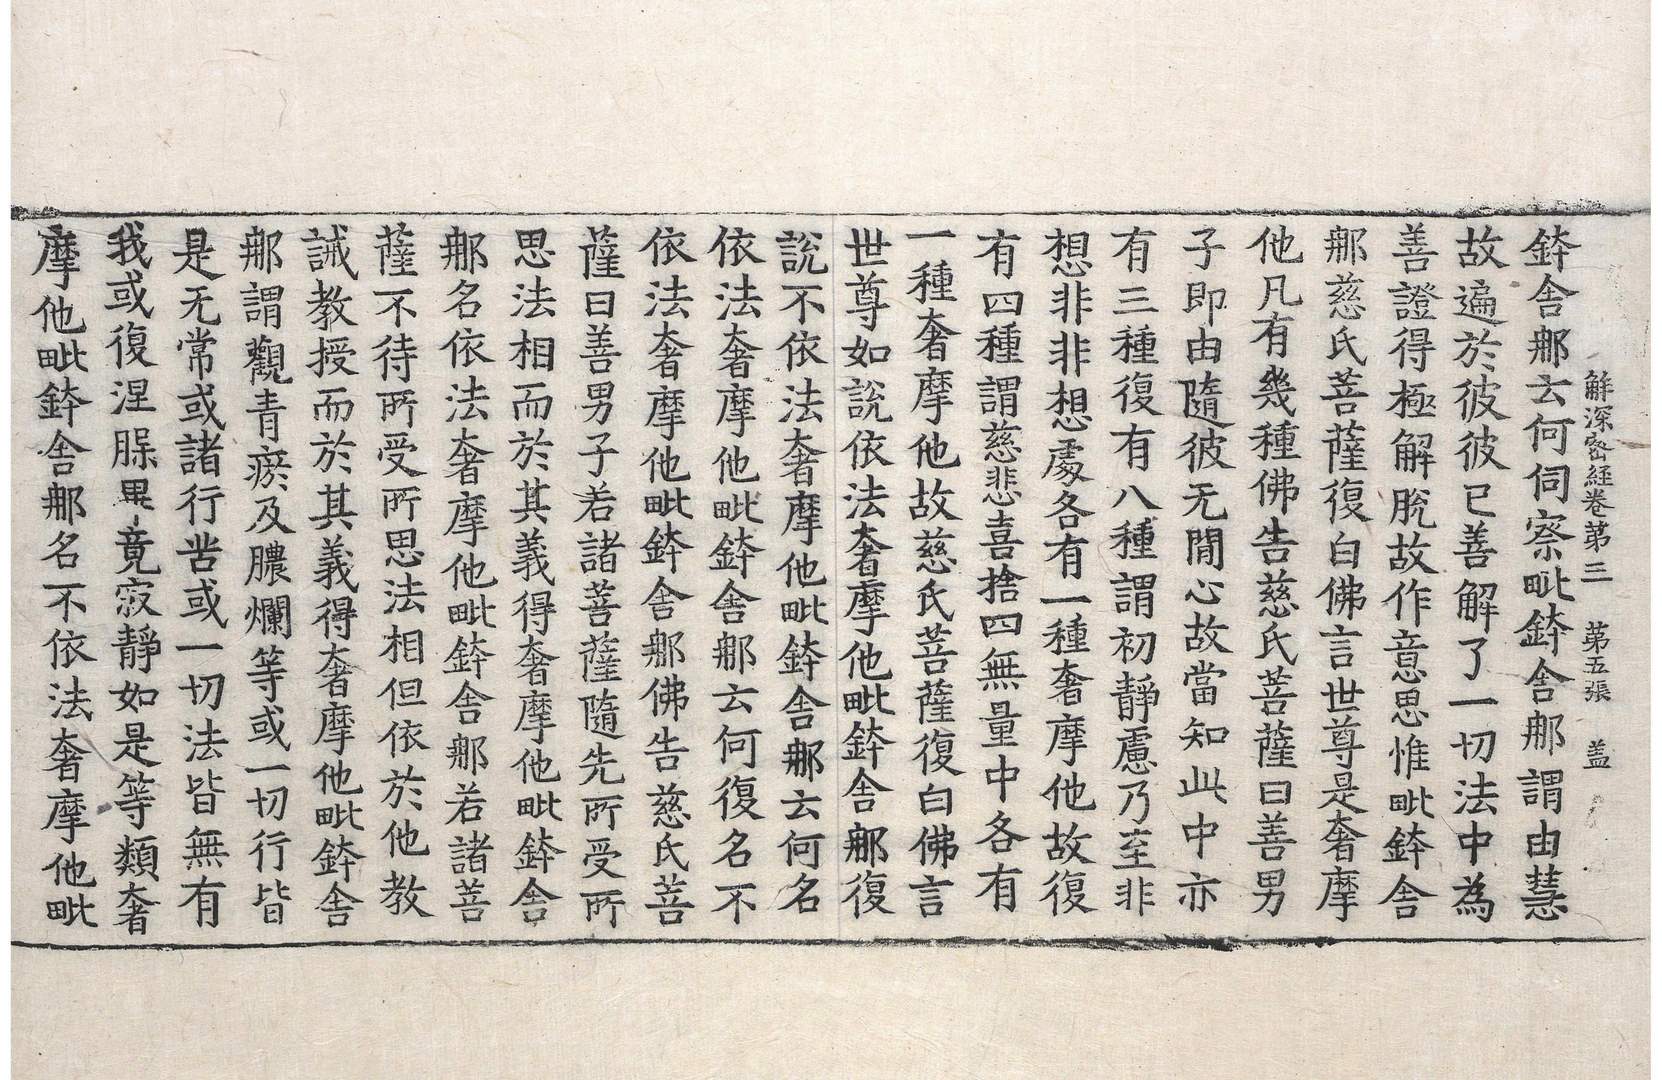 解深密經卷第三　第五張　盖
鉢舍那云何伺察毗鉢舍那謂由慧
故遍於彼彼已善解了一切法中為
善證得極解脫故作意思惟毗鉢舍
那慈氏菩薩復白佛言世尊是奢摩
他凡有幾種佛告慈氏菩薩曰善男
子即由隨彼无閒心故當知此中亦
有三種復有八種謂初靜慮乃至非
想非非想處各有一種奢摩他故復
有四種謂慈悲喜捨四無量中各有
一種奢摩他故慈氏菩薩復白佛言
世尊如說依法奢摩他毗鉢舍那復
說不依法奢摩他毗鉢舍那云何名
依法奢摩他毗鉢舍那云何復名不
依法奢摩他毗鉢舍那佛告慈氏菩
薩曰善男子若諸菩薩隨先所受所
思法相而於其義得奢摩他毗鉢舍
那名依法奢摩他毗鉢舍那若諸菩
薩不待所受所思法相但依於他教
誡教授而於其義得奢摩他毗鉢舍
那謂觀青瘀及膿爛等或一切行皆
是无常或諸行苦或一切法皆無有
我或復涅槃畢竟寂靜如是等類奢
摩他毗鉢舍那名不依法奢摩他毗